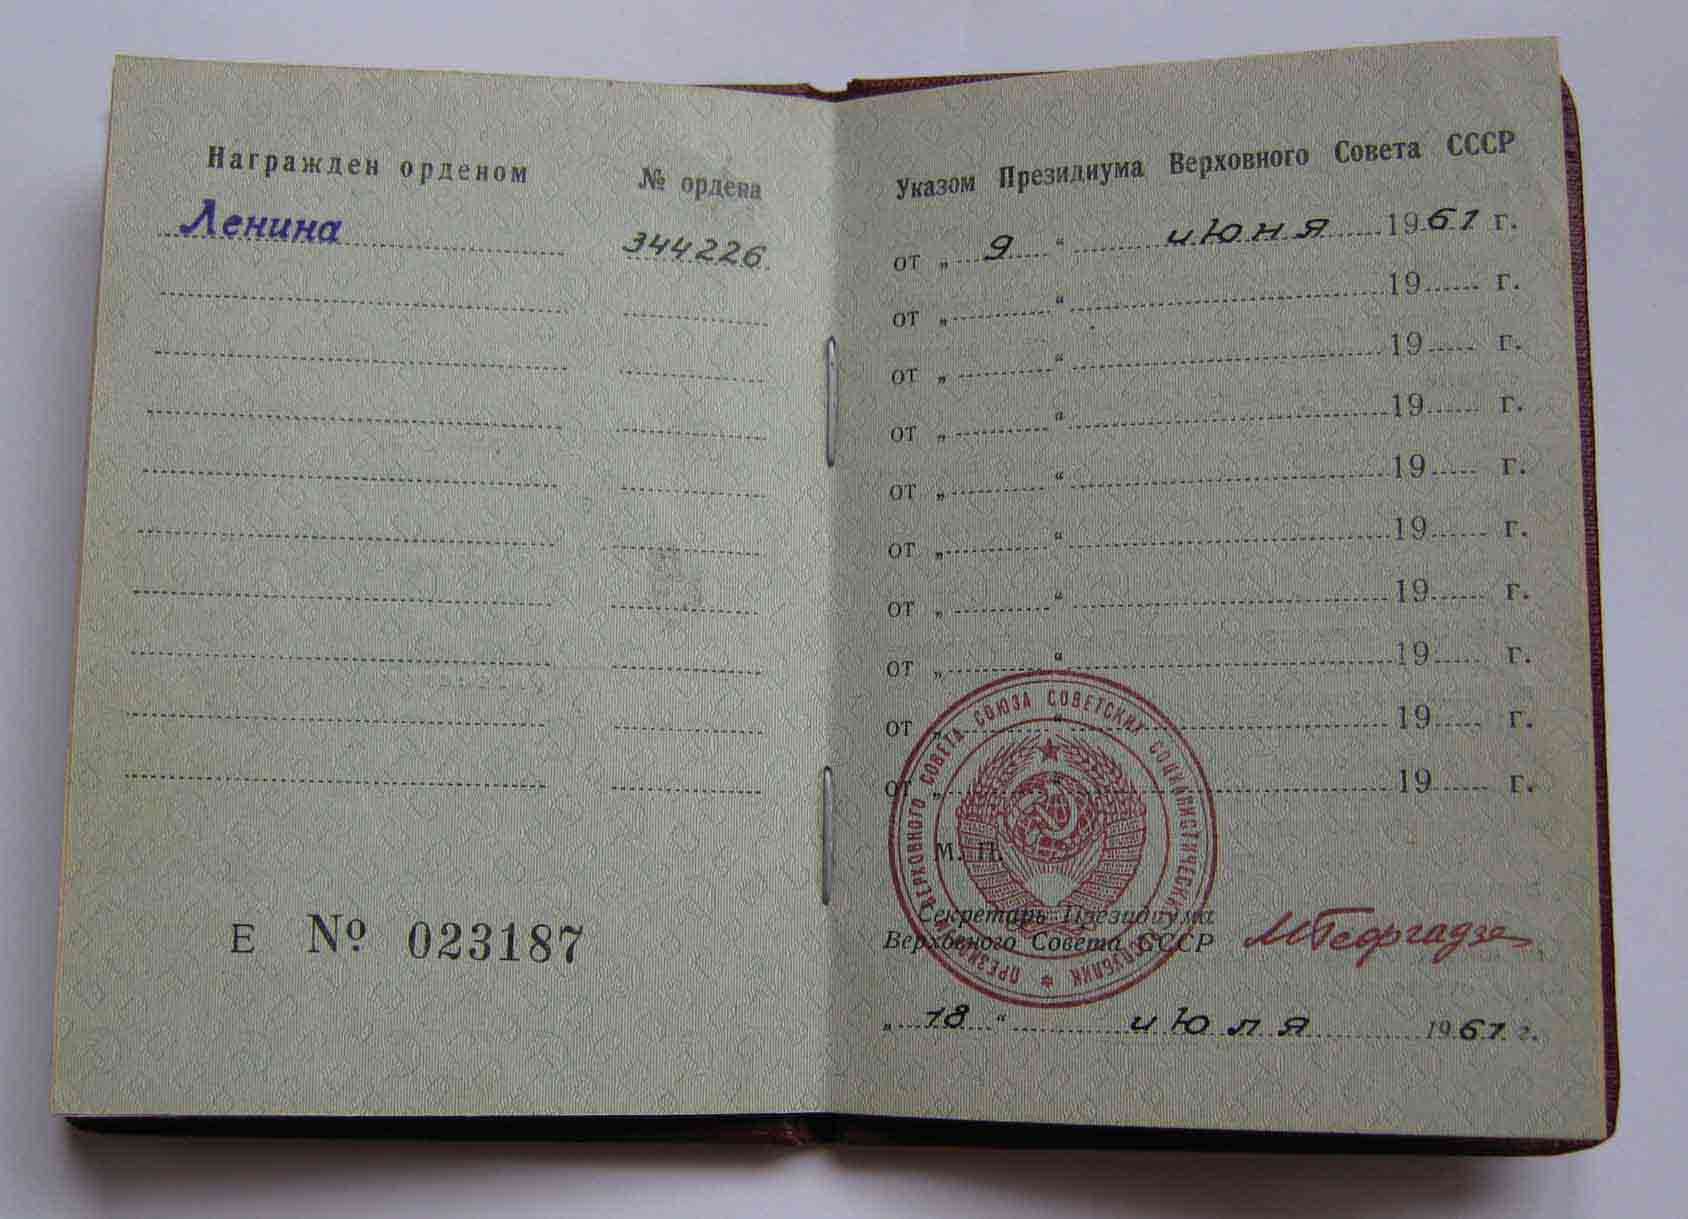 Награжден орденом
№ ордена
Ленина
344226
Е № 023187
Указом Президиума Верховного Совета СССР
от „ 9 “ июня 1961 г.
от „ “ 19 г.
от „ “ 19 г.
от „ “ 19 г.
от „ “ 19 г.
от „ “ 19 г.
от „ “ 19 г.
от „ “ 19 г.
от „ “ 19 г.
от „ “ 19 г.
М. П.
ПРЕЗИДИУМ ВЕРХОВНОГО СОВЕТА СОЮЗА СОВЕТСКИХ СОЦИАЛИСТИЧЕСКИХ РЕСПУБЛИК
Секретарь Президиума
Верховного Совета СССР
МГеоргадзе
„ 18 “ июля 1961 г.